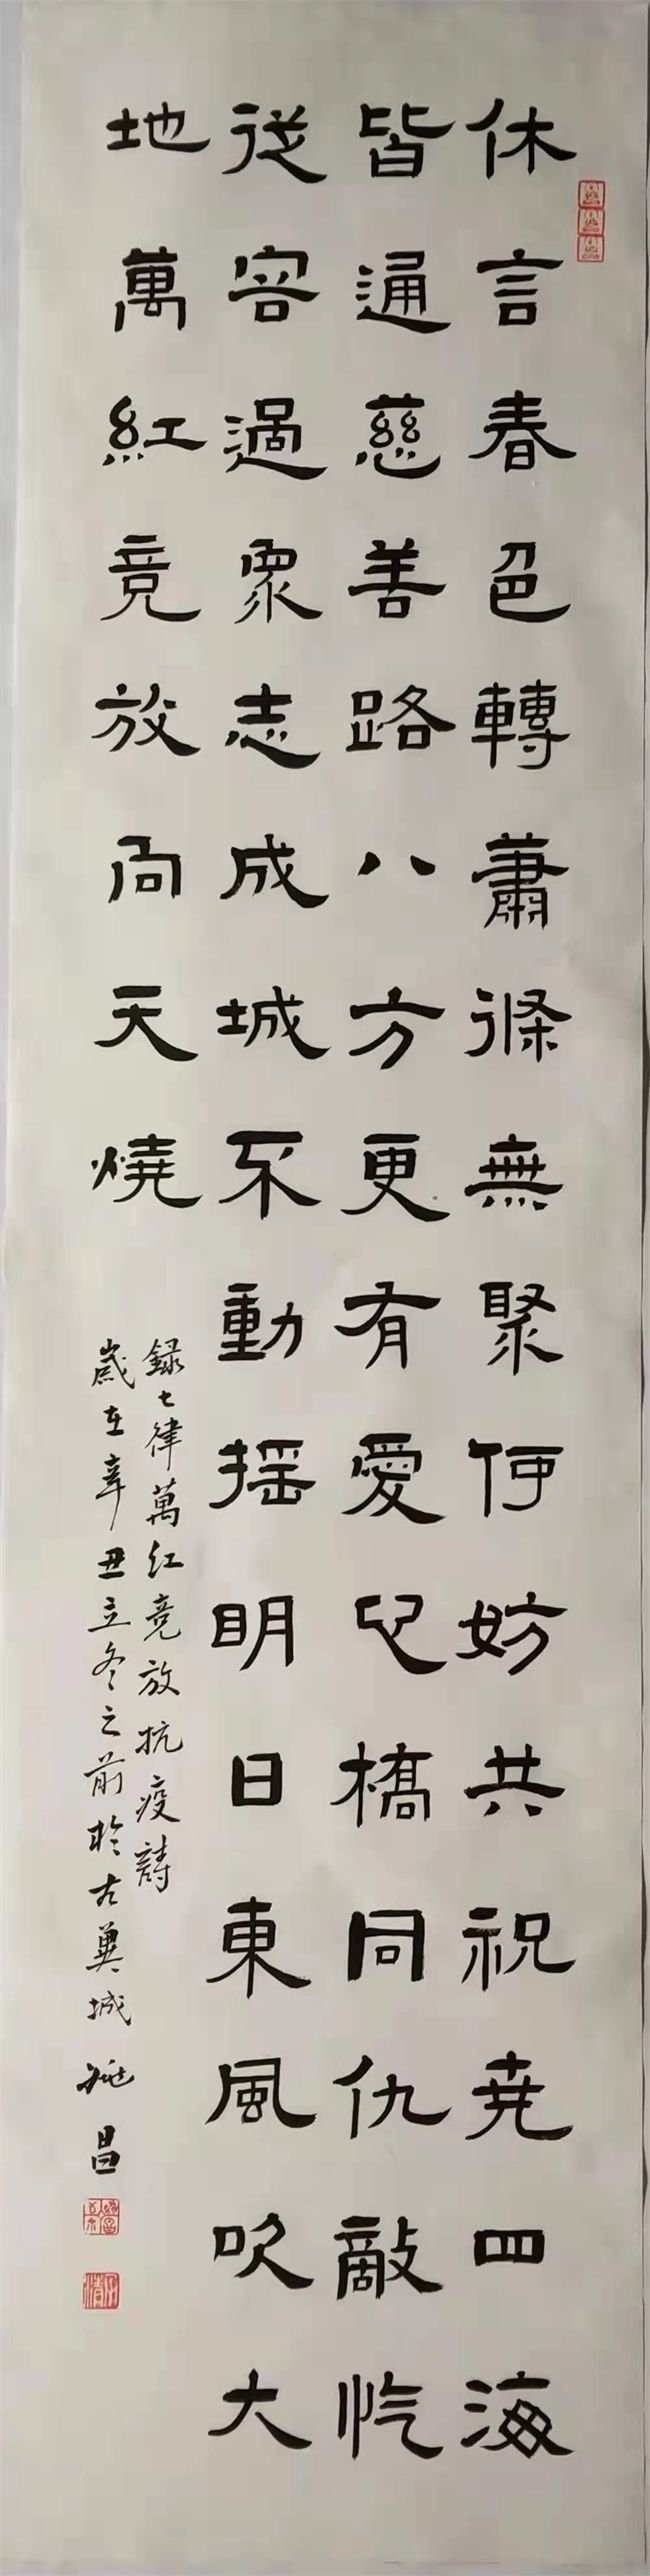 休言春色轉蕭條無聚何妨共祝尭四海
皆通慈善路八方更有愛心橋同仇敵忾
從容過眾志成城不動搖明日東風吹大
地萬紅竞放向天燒
録七律萬紅竞放抗疫詩
歲在辛丑立冬之前於古冀城 昌